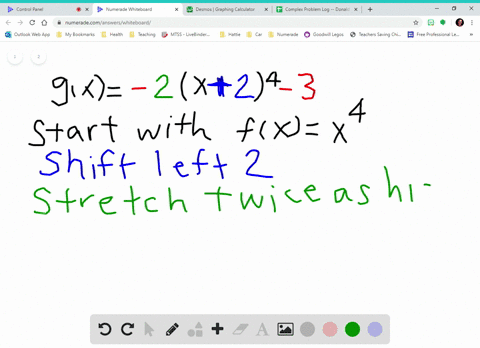 Control Panel
Numerade Whiteboard
Desmos | Graphing Calculator
numerade.com/answers/whiteboard/
Outlook Web App
My Bookmarks
Health
Teaching
Hattie
Car
Numerade
Goodwill Legos
Teachers Saving Ch...
Free Professional Le...
g(x) = -2(x+2)^4 -3
Start with f(x) = x^4
Shift left 2
Stretch twice as hi